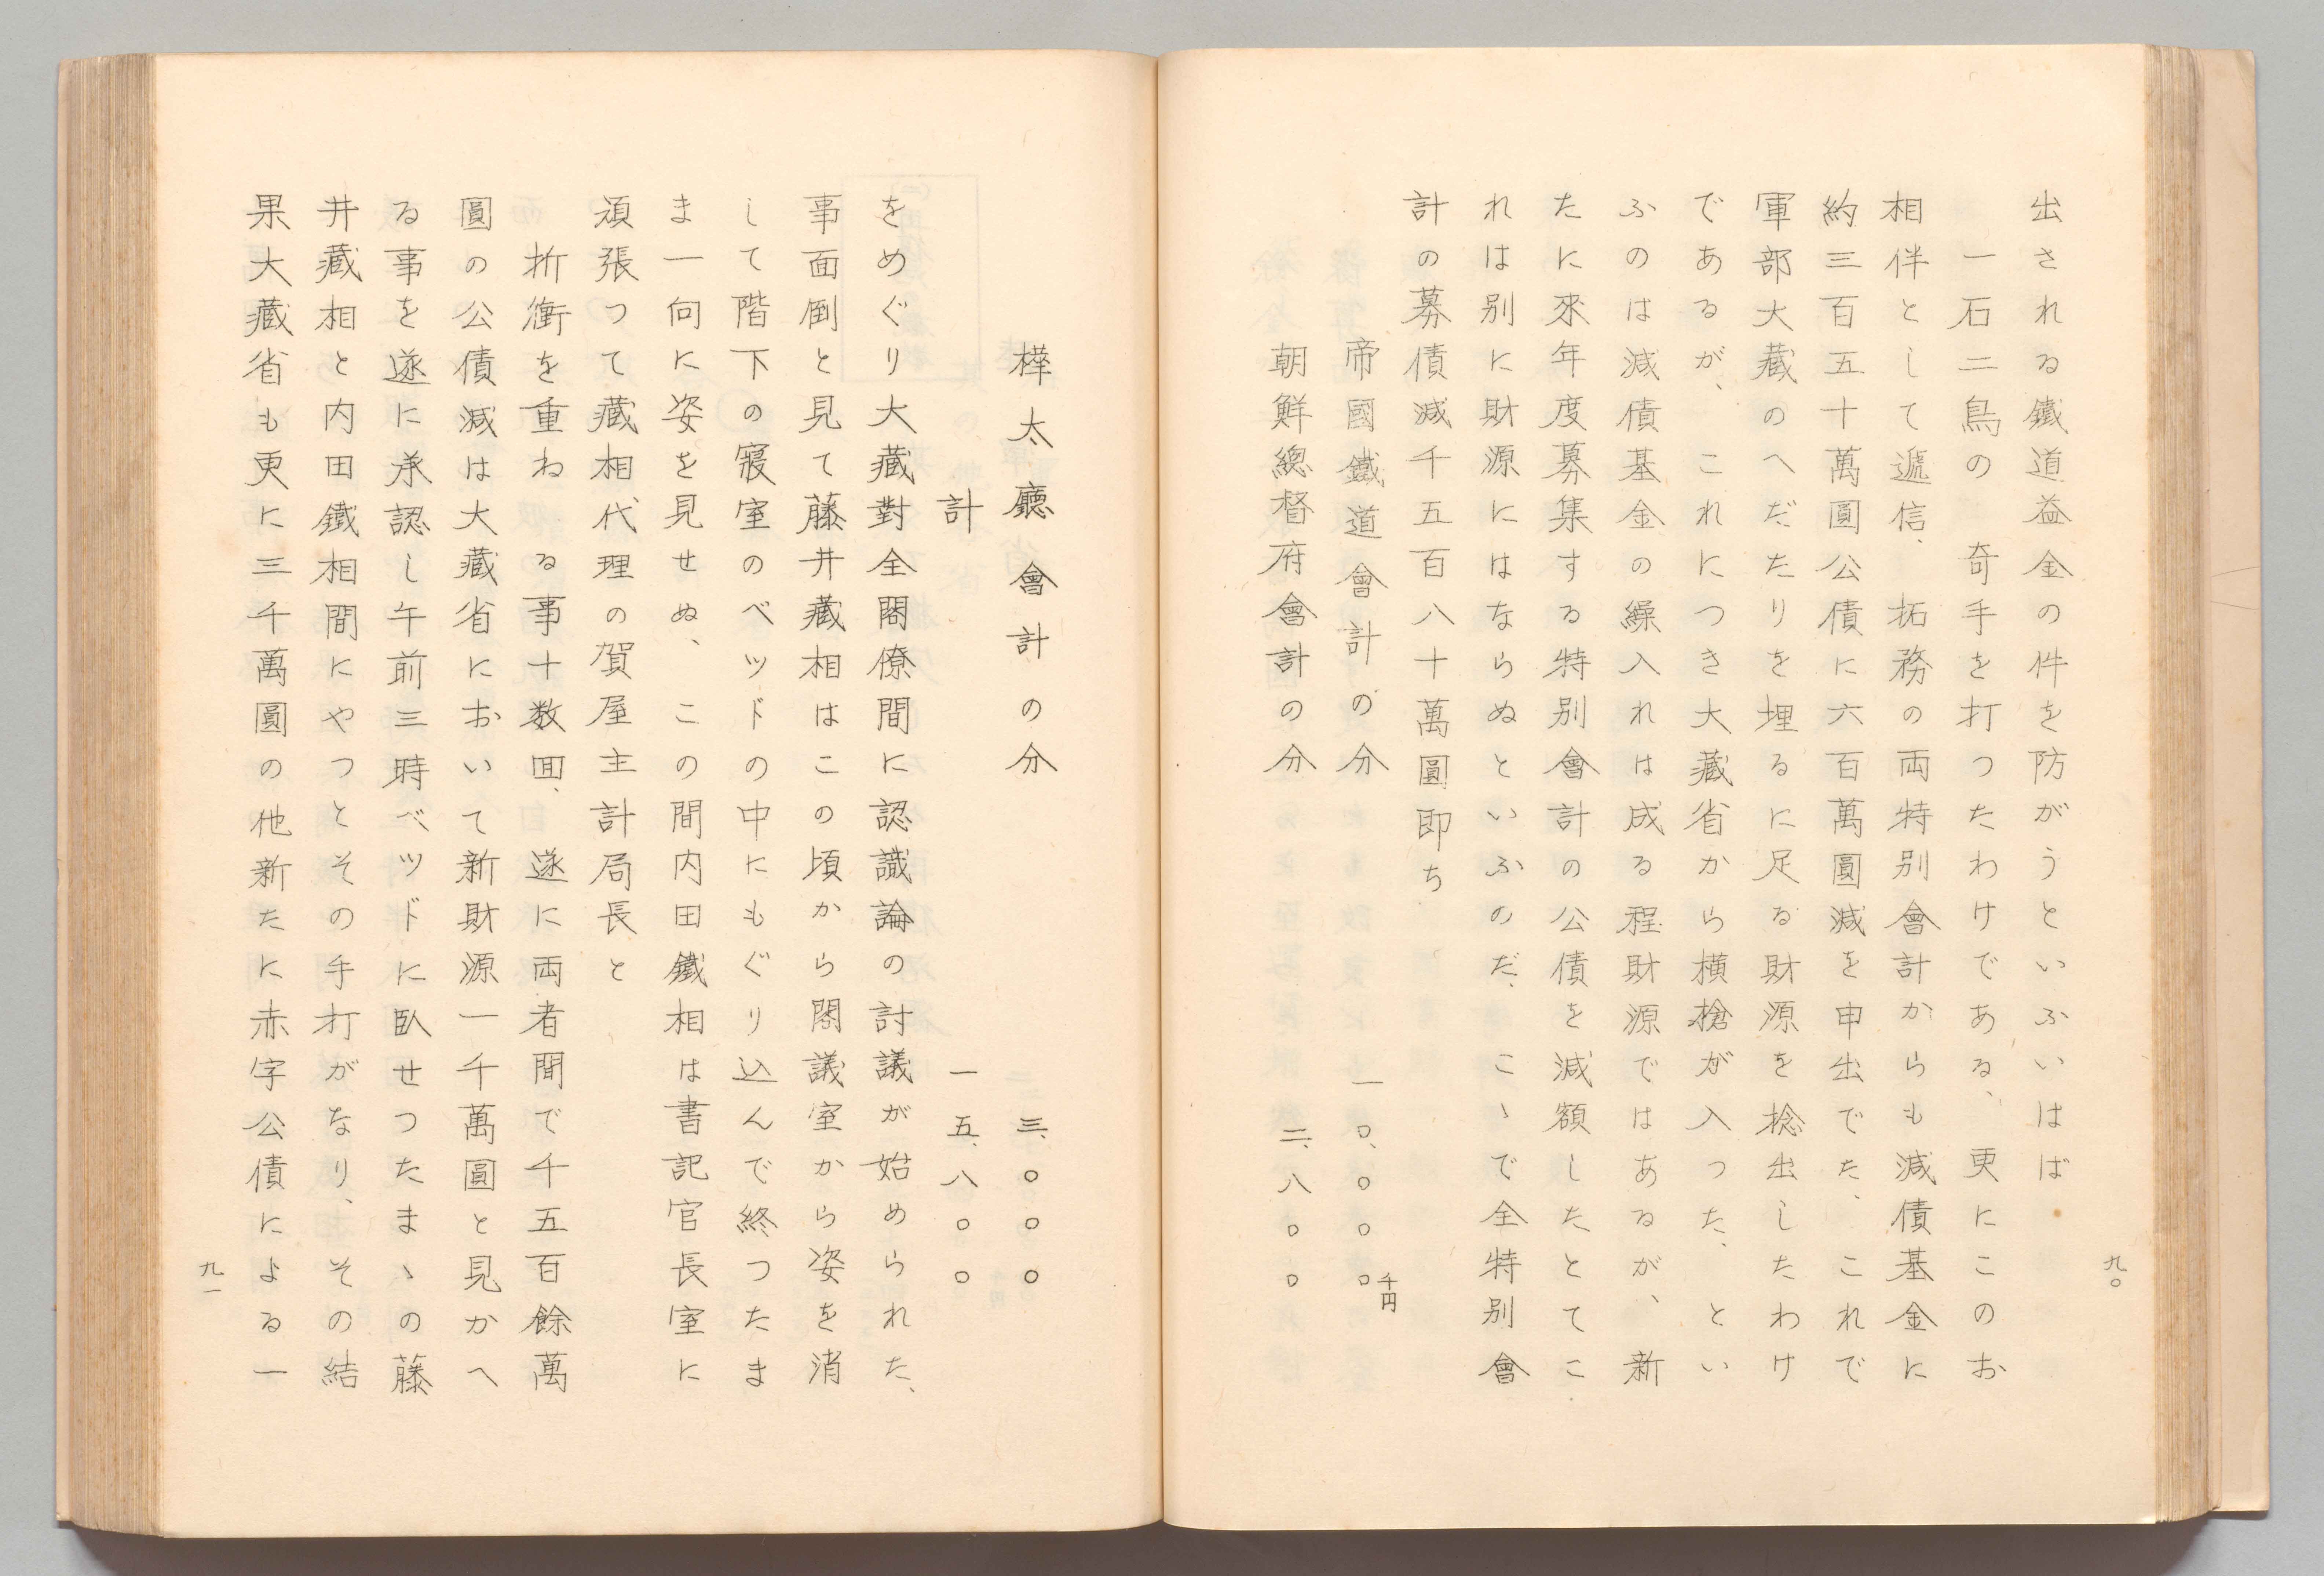 出される鐵道益金の件を防がうといふいはば
一石二鳥の 奇手を打つたわけである、更にこのお
相伴として遞信、拓務の両特別會計からも減債基金に
約三百五十萬圓公債に六百萬圓減を申出でた、これで
軍部大藏のへだたりを埋るに足る財源を捻出したわけ
であるが、これにつき大藏省から横槍が入つた、とい
ふのは減債基金の繰入れは成る程財源ではあるが、新
たに來年度募集する特別會計の公債を減額したとてこ
れは別に財源にはならぬといふのだ、こゝで全特別會
計の募債減千五百八十萬圓即ち
帝國鐵道會計の分 一〇、〇〇〇千円
朝鮮總督府會計の分 二、八〇〇
九〇
樺太廳會計の分 三、〇〇〇
計 一五、八〇〇
をめぐり大藏對全閣僚間に認識論の討議が始められた、
事面倒と見て藤井藏相はこの頃から閣議室から姿を消
して階下の寢室のベツドの中にもぐり込んで終つたま
ま一向に姿を見せぬ、この間内田鐵相は書記官長室に
頑張つて藏相代理の賀屋主計局長と
折衝を重ね る事十数回、遂に両者間で千五百餘萬
圓の公債減は大藏省において新財源一千萬圓と見かへ
る事を遂に承認し午前三時ベツドに臥せつたまゝの藤
井藏相と内田鐵相間にやつとその手打がなり、その結
果大藏省も更に三千萬圓の他新たに赤字公債による一
九一